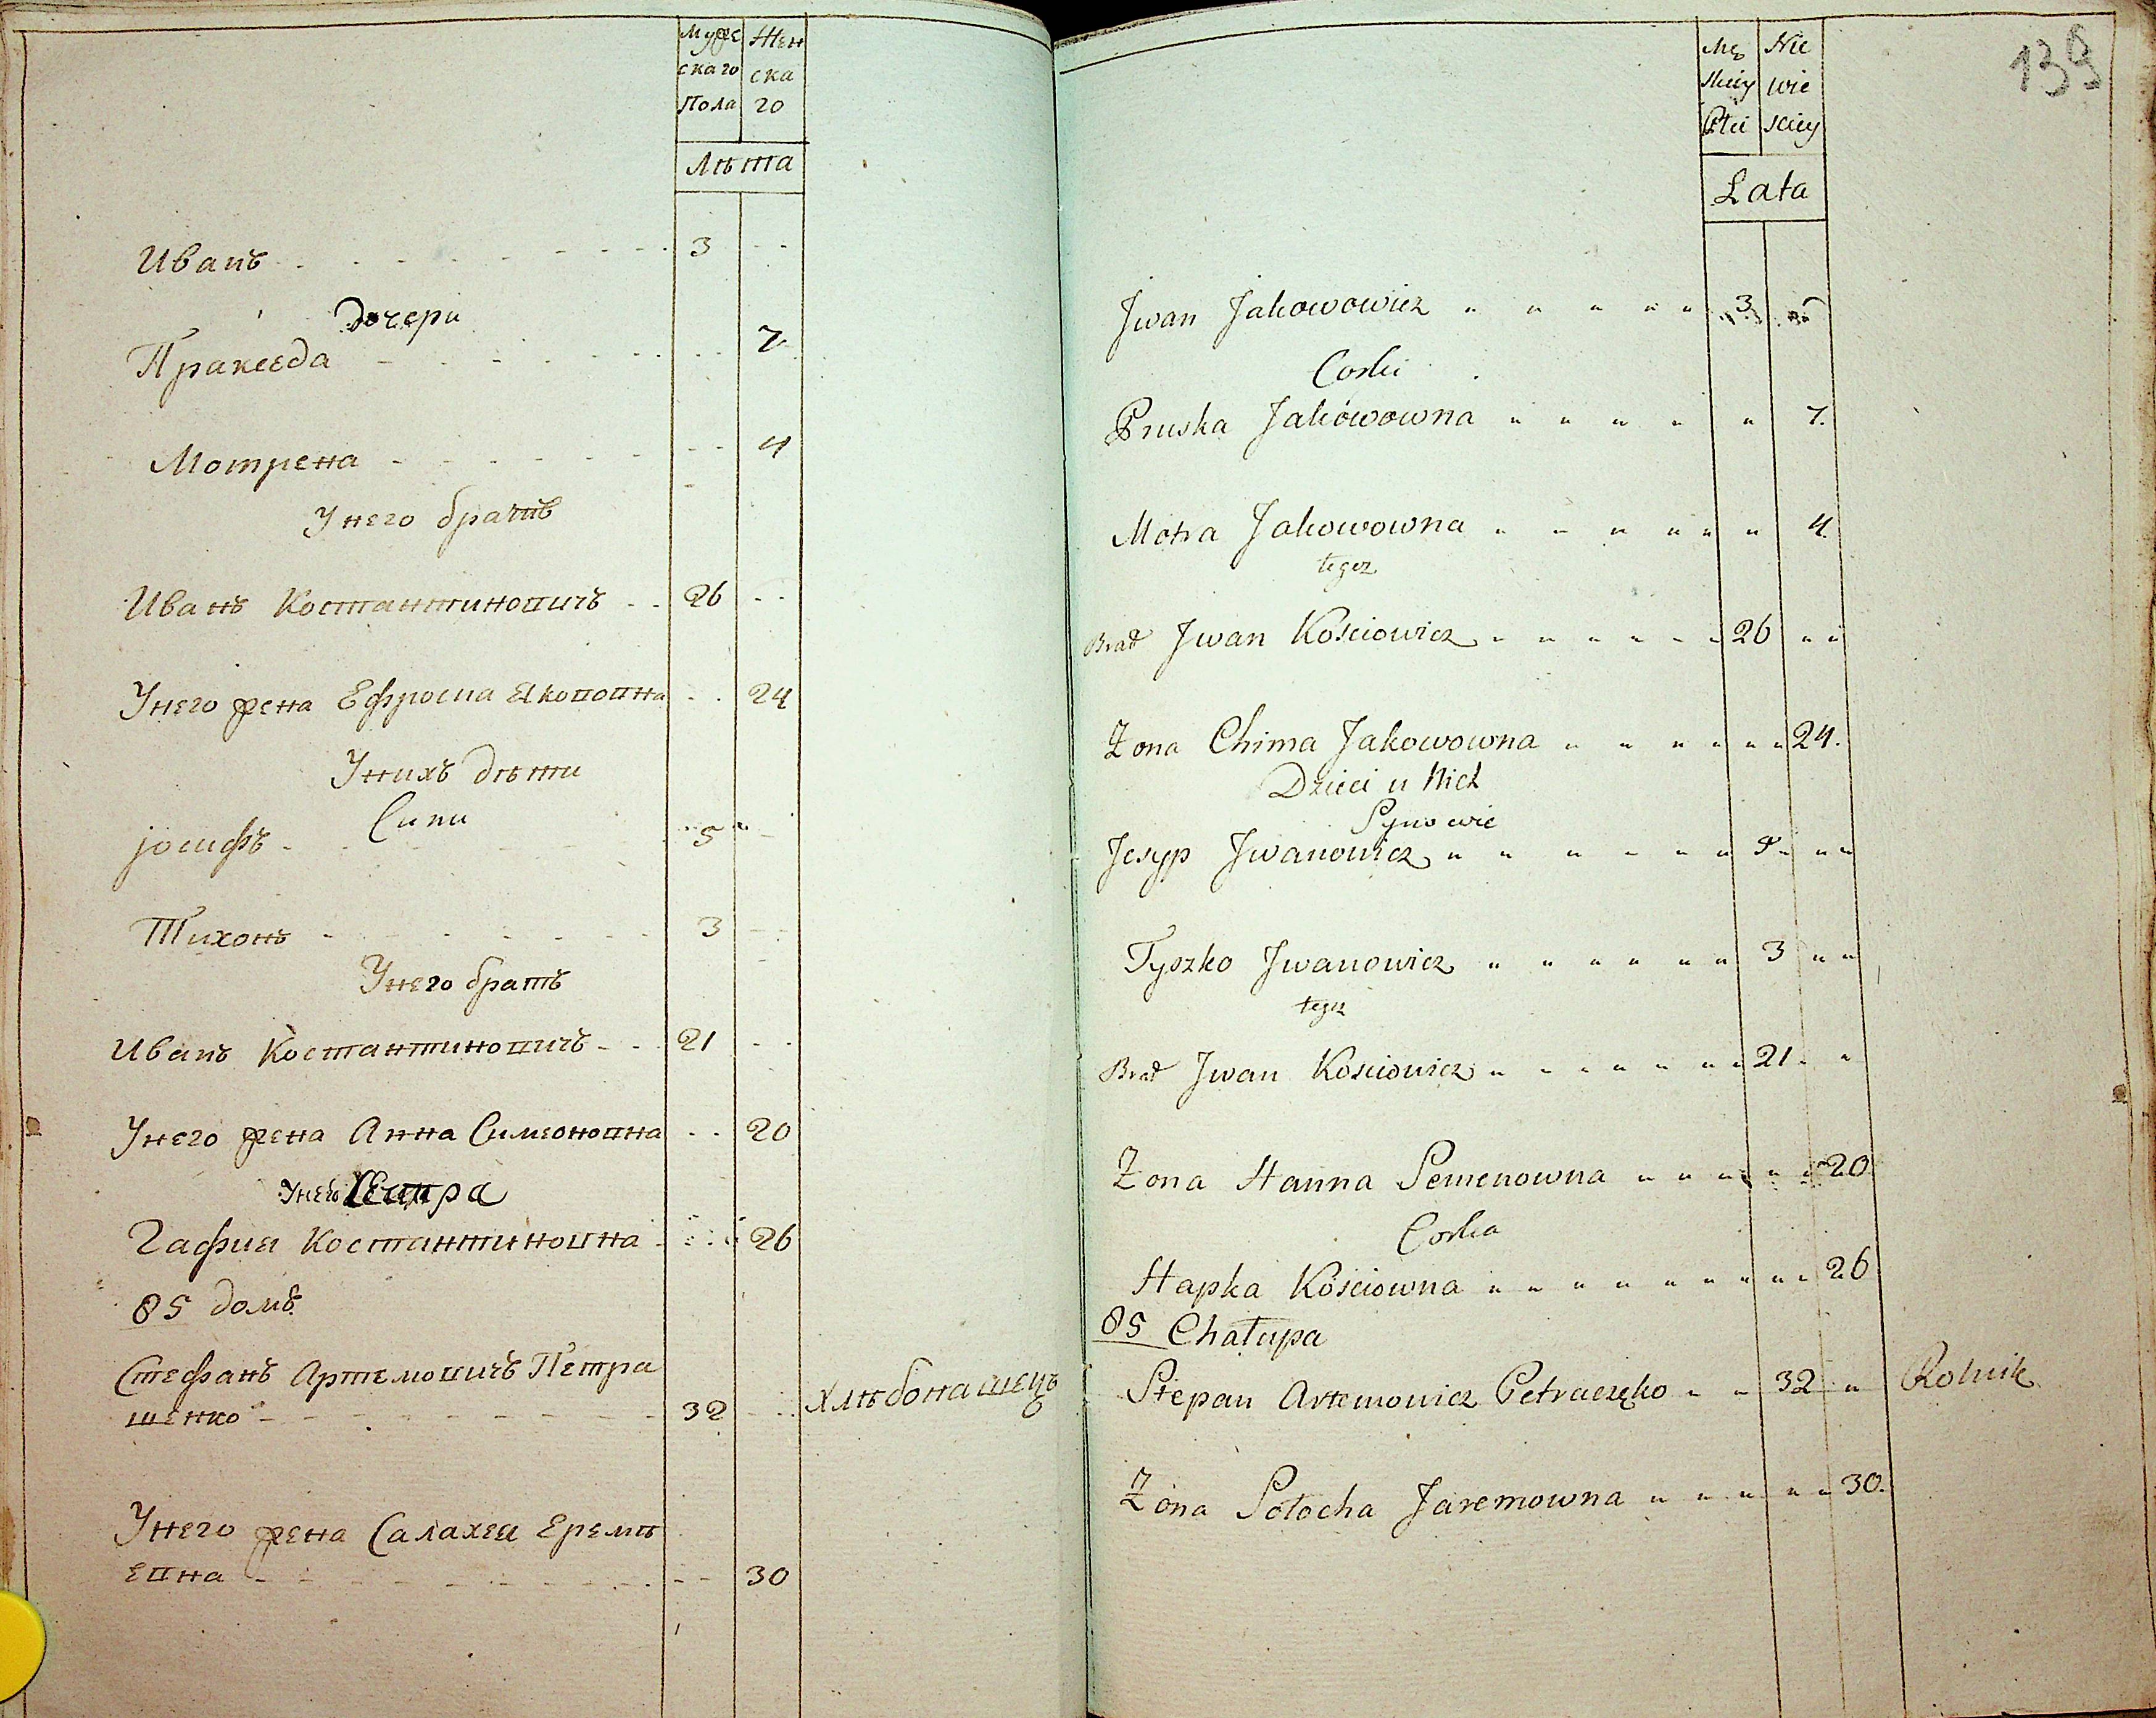 Мужс Жен
скаго ска
Пола го
Лѣта
Иванъ 3
Дочери
Параскеда 7
Мотрена 4
Унего братъ
Иванъ Костантиновичъ 26
Унего жена Ефросиа Якововна 24
Унихъ дѣти
Сини
іосифъ 5
Тихонъ 3
Унего братъ
Иванъ Костантиновичъ 21
Унего жена Анна Симеоновна 20
Унего Сестра
Гафия Костантиновна 26
85 домъ
Стефанъ Артемовичъ Петра
шенко 32 хлѣбопашецъ
Унего жена Салахея Еремѣ
евна 30
139
Mę Nie
skiey wie
Płci sciey
Lata
Jwan Jakowowicz 3
Corki
Pruska Jakówowna 7.
Motra Jakowowna 4
tegoz
Brat Jwan Kościowicz 26
Zona Chima Jakowowna 24.
Dzieci u Nich
Synowie
Jesyp Jwanowicz 5
Tyszko Jwanowicz 3
tegoz
Brat Jwan Kościowicz 21
Zona Hanna Semenowna 20
Corka
Hapka Kościowna 26
85 Chałupa
Stepan Artemowicz Petraszko 32 Rolnik
Zona Sołocha Jaremowna 30.